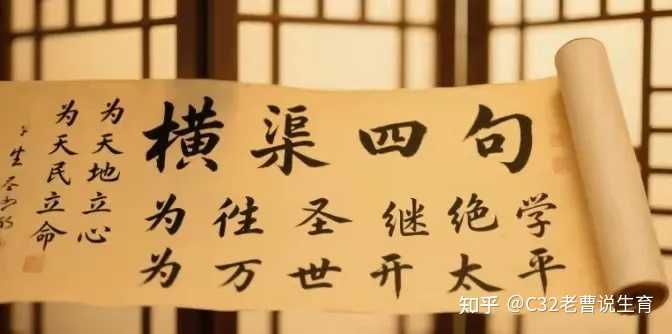 横渠四句
为天地立心
为天民立命
为往圣继绝学
为万世开太平
知乎 @C32老曹说生育